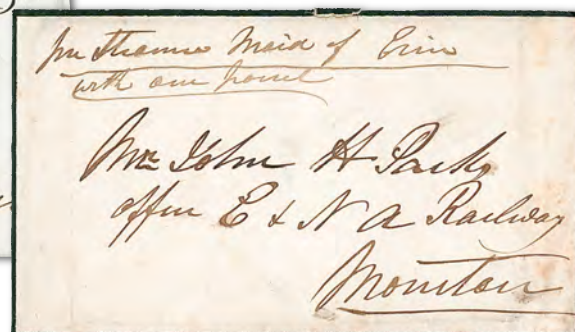 per Steamer Maid of Erin
with one parcel
Mr John H Parks
office E & N A Railway
Moncton